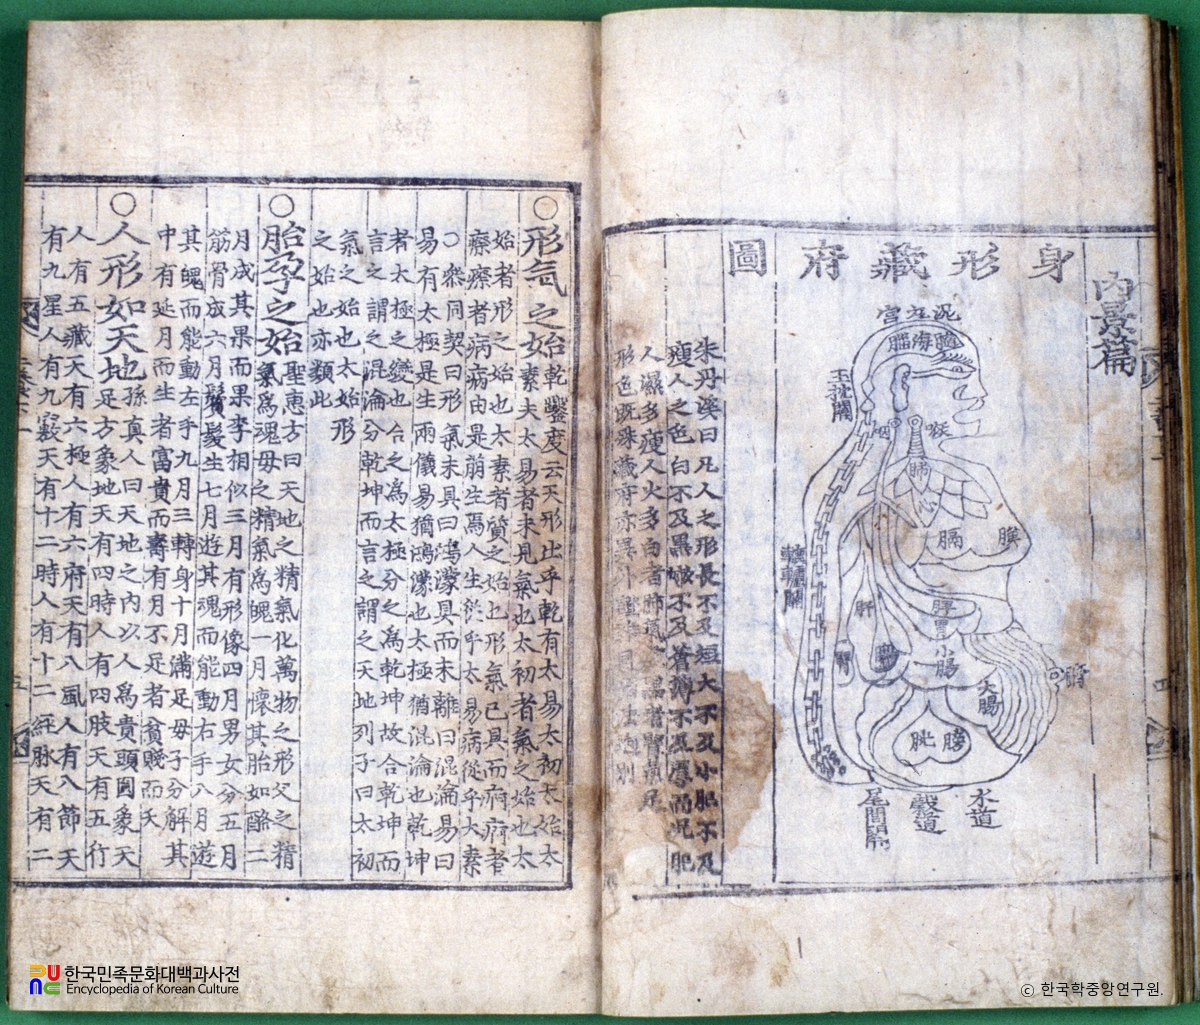 內景篇
身形藏府圖
泥丸宮
髓海腦
玉枕關
咽
喉
肺
心
膈
肝
脾
胃
小腸
大腸
臍
膀胱
轆轤關
水道
穀道
尾閭關
朱丹溪曰凡人之形長不及短大不及小肥不及
瘦人之色白不及黑嫩不及蒼薄不及厚而況肥
人濕多瘦人火多白者肺氣虛黑者腎氣足
形色旣殊藏府亦異外證雖同治法逈別
○形氣之始 乾鑿度云天形出乎乾有太易太初太始太
素夫太易者未見氣也太初者氣之始也太
始者形之始也太素者質之始也形氣已具而痾痾者
瘵瘵者病病由是萌生焉人生從乎太易病從乎太素
○參同契曰形氣未具曰鴻濛具而未離曰混淪易曰
易有太極是生兩儀易猶鴻濛也太極猶混淪也乾坤
者太極之變也合之爲太極分之爲乾坤故合乾坤而
言之謂之混淪分乾坤而言之謂之天地列子曰太初
氣之始也太始形
之始也亦類此
○胎孕之始 聖惠方曰天地之精氣化萬物之形父之精
氣爲魂母之精氣爲魄一月懷其胎如酪二
月成其果而果李相似三月有形像四月男女分五月
筋骨成六月鬢髮生七月遊其魂而能動右手八月遊
其魄而能動左手九月三轉身十月滿足母子分解其
中有延月而生者富貴而壽有月不足者貧賤而夭
○人形如天地 孫眞人曰天地之內以人爲貴頭圓象天
足方象地天有四時人有四肢天有五行
人有五藏天有六極人有六府天有八風人有八節天
有九星人有九竅天有十二時人有十二經脉天有二
한국민족문화대백과사전
Encyclopedia of Korean Culture
ⓒ 한국학중앙연구원.